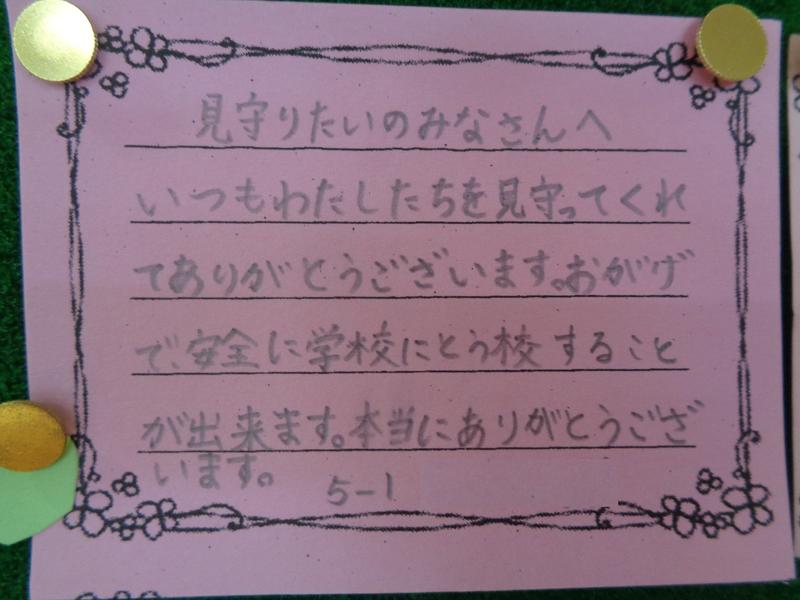 見守りたいのみなさんへ
いつもわたしたちを見守ってくれ
てありがとうございます。おがげ
で、安全に学校にとう校すること
が出来ます。本当にありがとうござ
います。
5-1